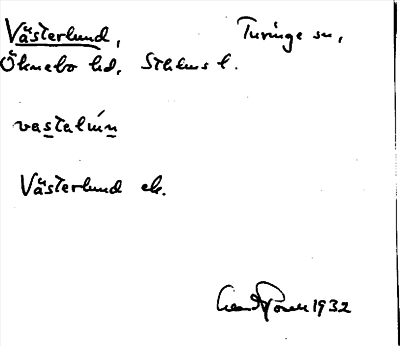 Västerlund, Turinge sn,
Öknebo hd, Sthlms l.
vastəlún
Västerlund ek.
1932